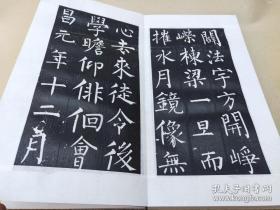 闢法宇方開崢
嶸棟梁一旦而
摧水月鏡像無
心去來徒令後
學瞻仰俳佪會
昌元年十二月